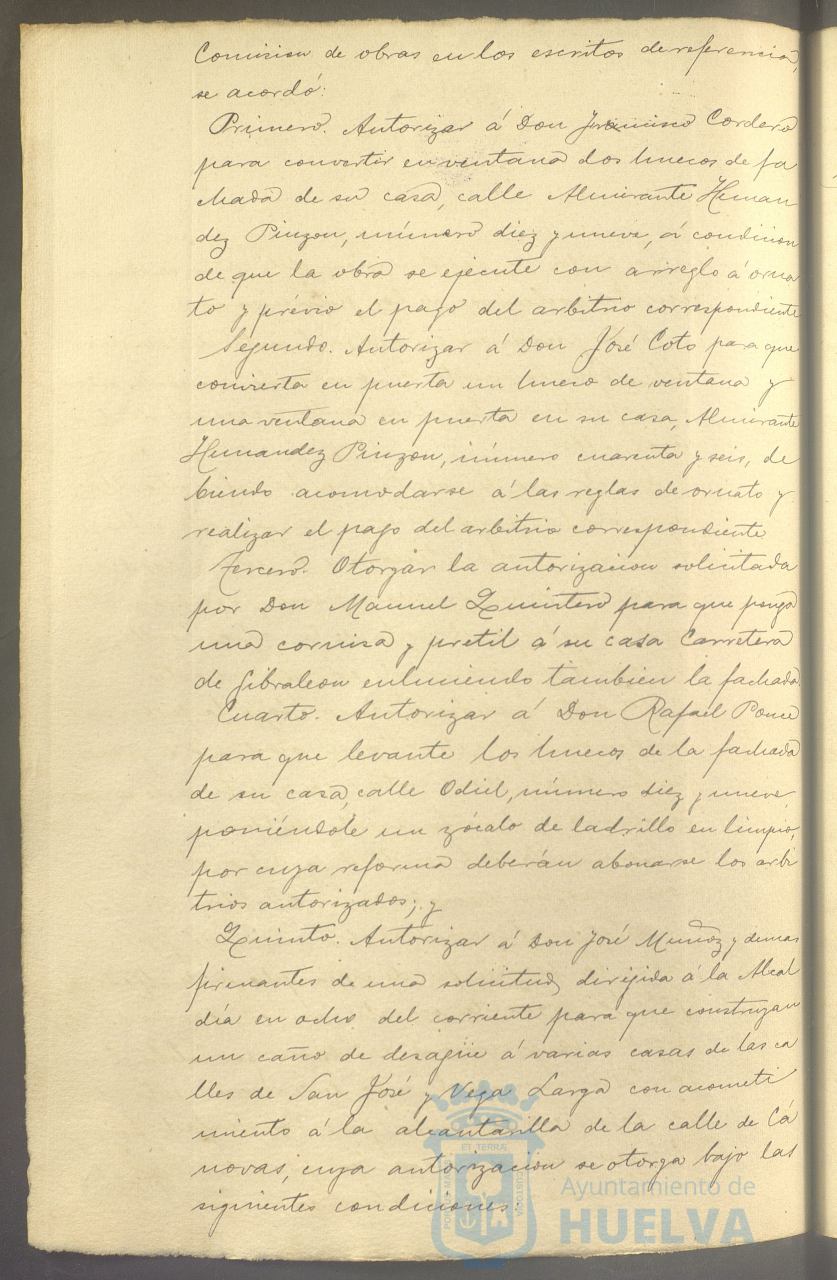 Comision de obras en los escritos de referencia,
se acordó:
Primero. Autorizar á Don Francisco Cordero
para convertir en ventana dos huecos de fa
chada de su casa, calle Almirante Hernan
dez Pinzon, número diez y nueve, á condicion
de que la obra se ejecute con arreglo á orna
to y prévio el pago del arbitrio correspondiente
Segundo. Autorizar á Don José Coto para que
convierta en puerta un hueco de ventana y
una ventana en puerta en su casa, Almirante
Hernandez Pinzon, número cuarenta y seis, de
biendo acomodarse á las reglas de ornato y
realizar el pago del arbitrio correspondiente
Tercero. Otorgar la autorizacion solicitada
por Don Manuel Quintero para que ponga
una cornisa y pretil á su casa Carretera
de Gibraleon enluciendo tambien la fachada.
Cuarto. Autorizar á Don Rafael Ponce
para que levante los huecos de la fachada
de su casa, calle Odiel, número diez y nueve,
poniéndole un zócalo de ladrillo en limpio,
por cuya reforma deberán abonarse los arbi
trios autorizados; y
Quinto. Autorizar á Don José Muñoz y demas
firmantes de una solicitud dirijida á la Alcal
día en ocho del corriente para que construyan
un caño de desagüe á varias casas de las ca
lles de San José y Vega Larga con acometi
miento á la alcantarilla de la calle de Cá
novas, cuya autorizacion se otorga bajo las
siguientes condiciones:
PORTUS MARIS ET TERRAE CUSTODIA
Ayuntamiento de
HUELVA